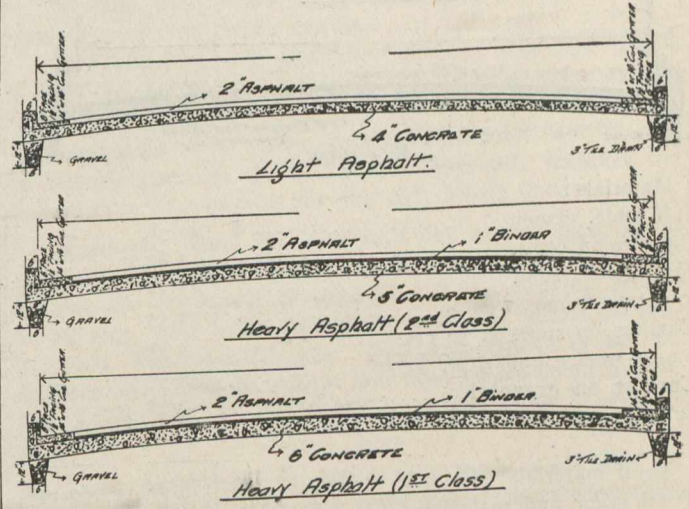 2" ASPHALT
4" CONCRETE
GRAVEL
3" TILE DRAIN
Light Asphalt.
2" ASPHALT
1" BINDER
5" CONCRETE
GRAVEL
3" TILE DRAIN
Heavy Asphalt (2nd Class)
2" ASPHALT
1" BINDER
6" CONCRETE
GRAVEL
3" TILE DRAIN
Heavy Asphalt (1ST Class)